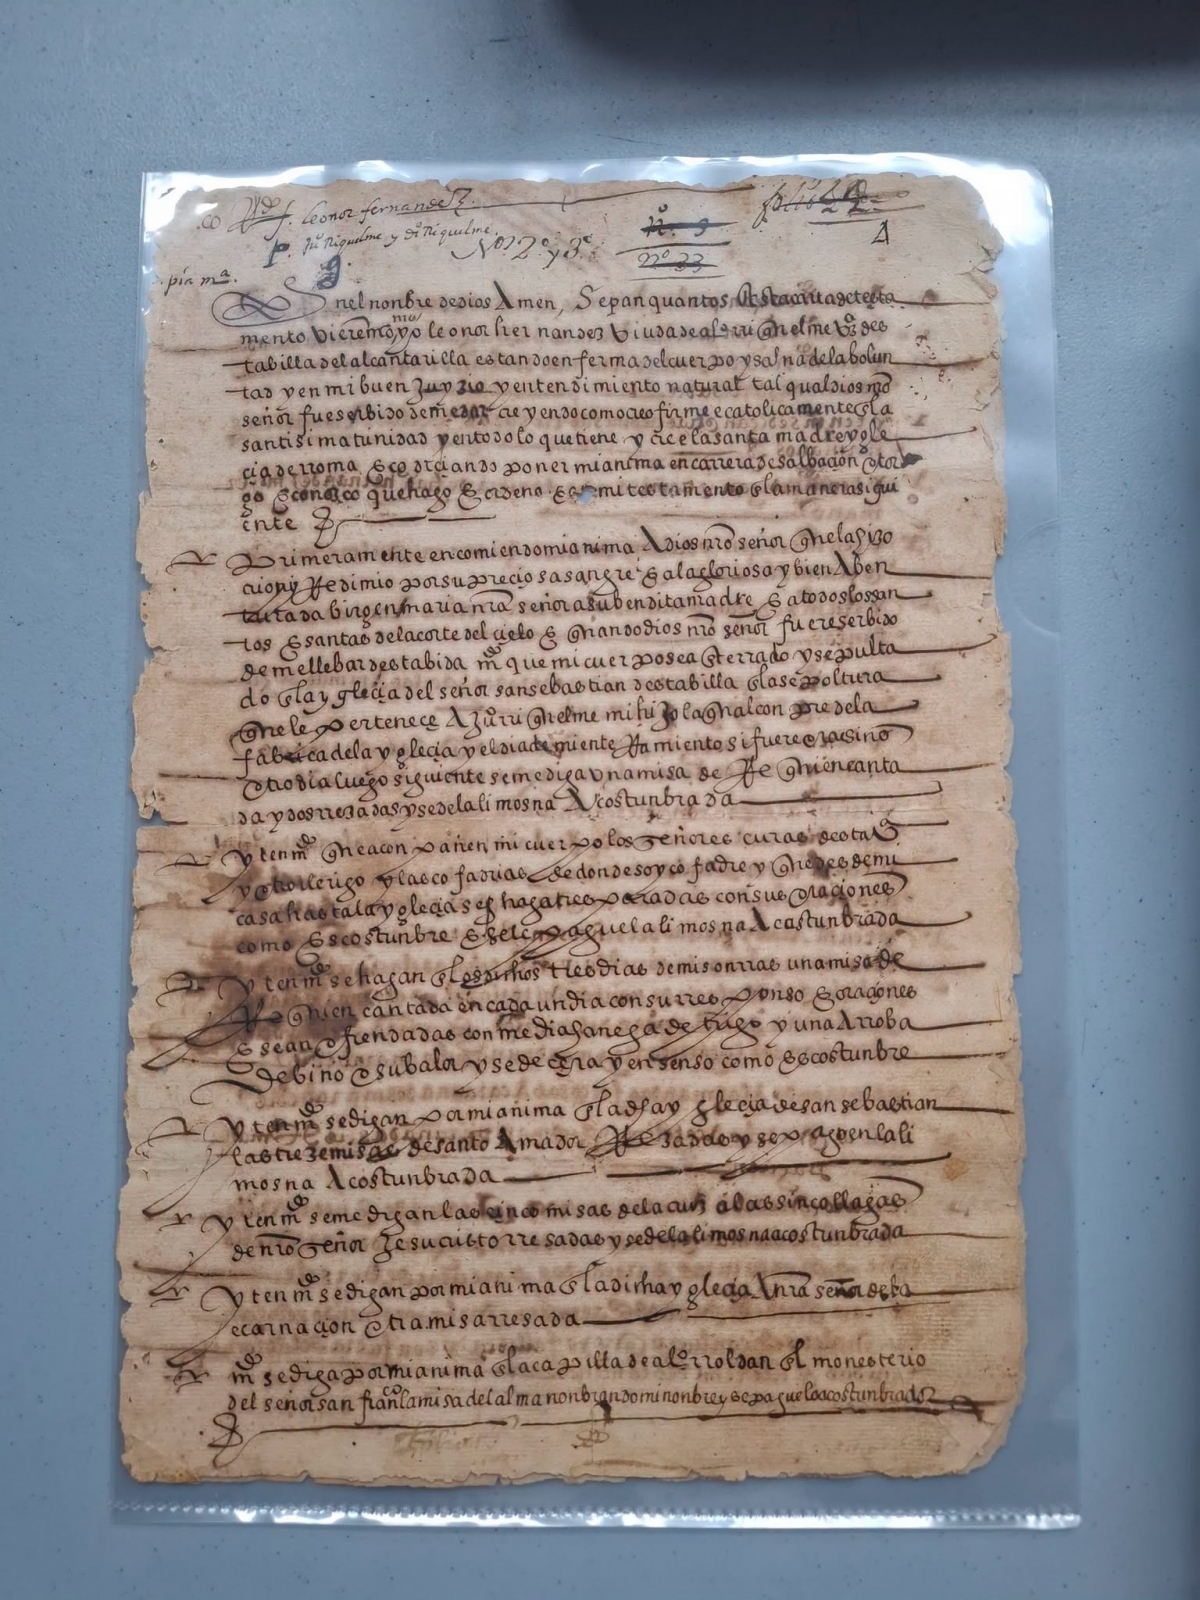 leonor fernandez
P. Juº Riquilme y dº Riquilme
Nos 2º y 3º
nº 9
nº 33
4
pía mª
9
En el nonbre de dios Amen, Sepan quantos esta carta de testa
mento vieren como yo leonor hernandez viuda de alº rriquelme vº des
ta billa del alcantarilla estando en ferma del cuerpo y sana de la bolun
tad y en mi buen juyzio y entendimiento natural tal qual dios nrō
señor fue serbido de me dar creyendo como creo firme e catolicamente en la
santisima trinidad y en todo lo que tiene y cree la santa madre ygle
cia de rroma E codiciando poner mi anima en carrera de salbacion otor
go E conozco que hago E ordeno este mi testamento en la manera sigui
ente
Primeramente encomiendo mi anima A dios nrō señor que la hizo
crio y Redimio por su preciosa sangre E a la gloriosa y bien Aben
turada birgen maria nrā señora su bendita madre E a todos los san
tos E santas de la corte del cielo E quando dios nrō señor fuere serbido
de me llebar desta bida mdº que mi cuerpo sea enterrado y sepulta
do en la yglecia del señor san sebastian desta billa en la sepoltura
que le pertenece A juº rriquelme mi hijo la qual conpre de la
fabrica de la yglecia y el dia de mi enterramiento si fuere ora sino
otro dia luego siguiente se me diga una misa de Requien canta
da y dos rrezadas y se de la limosna Acostunbrada
yten mdº que aconpañen mi cuerpo los señores curas desta
y otro clerigo y las cofadrias de donde soy cofadre y que desde mi
casa hasta la yglecia se hagan tres paradas con sus oraciones
como Es costunbre E se le pague la limosna Acostunbrada
yten mdº se hagan en los dichos tres dias de mis onrras una misa de
Requien cantada en cada un dia con su rresponso E oraciones
E sean ofrendadas con media fanega de trigo y una Arroba
de bino o su balor y se de cera y ensenso como Es costunbre
yten mdº se digan por mi anima en la dha yglecia de san sebastian
las treze misas de santo Amador Rezadas y se paguen la li
mosna Acostunbrada
yten mdº se me digan las cinco misas de la cruz a las sinco llagas
de nrō señor Jesucristo rresadas y se de la limosna acostunbrada
yten mdº se digan por mi anima en la dicha yglecia A nrā señora de la
encarnacion otra misa rresada
mdº se diga por mi anima en la capilla de alº rroldan en el monesterio
del señor san franco la misa del alma nonbrando mi nonbre y se pague lo acostunbrado